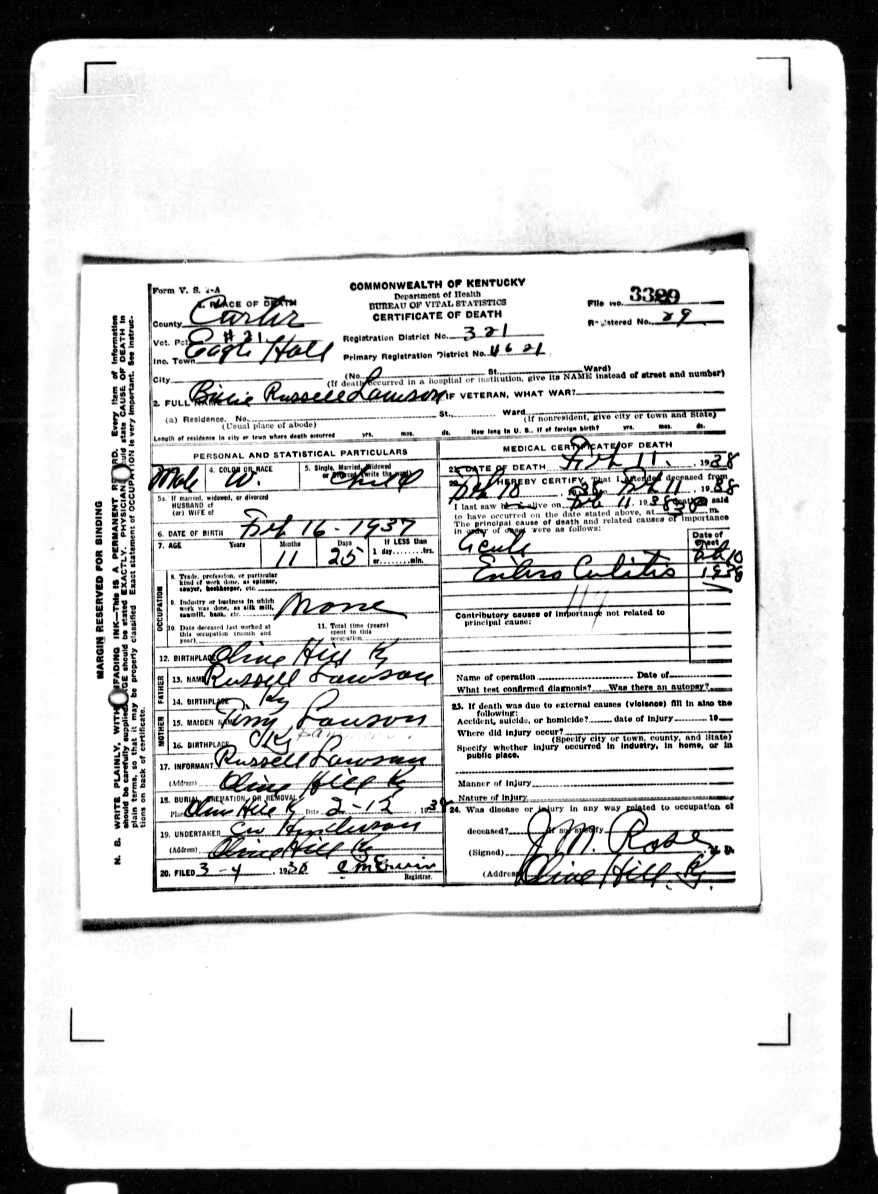 Form V. S. 1-A
COMMONWEALTH OF KENTUCKY
Department of Health
BUREAU OF VITAL STATISTICS
CERTIFICATE OF DEATH
File No. 3329
Registered No. 29
1. PLACE OF DEATH
County Carter
Vot. Pct. # 21
Inc. Town
Registration District No. 321
Primary Registration District No. 4621
City (No. St. Ward)
(If death occurred in a hospital or institution, give its NAME instead of street and number)
2. FULL NAME Billie Russell Lawson IF VETERAN, WHAT WAR?
(a) Residence. No. St., Ward
(Usual place of abode) (If nonresident, give city or town and State)
Length of residence in city or town where death occurred yrs. mos. ds. How long in U. S., if of foreign birth? yrs. mos. ds.
PERSONAL AND STATISTICAL PARTICULARS
Male 4. COLOR OR RACE W. 5. Single, Married, Widowed or Divorced (write the word) Child
5a. If married, widowed, or divorced
HUSBAND of
(or) WIFE of
6. DATE OF BIRTH Feb 16 - 1937
7. AGE Years Months 11 Days 25 If LESS than 1 day........hrs. or........min.
OCCUPATION
8. Trade, profession, or particular kind of work done, as spinner, sawyer, bookkeeper, etc.
9. Industry or business in which work was done, as silk mill, sawmill, bank, etc. None
10. Date deceased last worked at this occupation (month and year)
11. Total time (years) spent in this occupation
12. BIRTHPLACE Olive Hill Ky
FATHER
13. NAME Russell Lawson
14. BIRTHPLACE Ky
MOTHER
15. MAIDEN NAME Lawson
16. BIRTHPLACE Ky
17. INFORMANT Russell Lawson
(Address) Olive Hill Ky
18. BURIAL, CREMATION, OR REMOVAL
Place Olive Hill K Date 2-12, 1938
19. UNDERTAKER Henderson
(Address) Olive Hill Ky
20. FILED 3-4, 1938
Registrar.
MEDICAL CERTIFICATE OF DEATH
21. DATE OF DEATH Feb 11, 1938
22. I HEREBY CERTIFY, That I attended deceased from
Feb 10, 1938, to Feb 11, 1938
I last saw h alive on Feb 11, 1938, death is said
to have occurred on the date stated above, at 530 m.
The principal cause of death and related causes of importance
in order of onset were as follows:
Date of onset
Acute
Entero Colitis
Feb 10
1938
117
Contributory causes of importance not related to
principal cause:
Name of operation Date of
What test confirmed diagnosis? Was there an autopsy?
23. If death was due to external causes (violence) fill in also the
following:
Accident, suicide, or homicide? date of injury 19
Where did injury occur?
(Specify city or town, county, and State)
Specify whether injury occurred in industry, in home, or in
public place.
Manner of injury
Nature of injury
24. Was disease or injury in any way related to occupation of
deceased? If so, specify
(Signed) J M. Rose M. D.
(Address) Olive Hill. Ky.
MARGIN RESERVED FOR BINDING
N. B. WRITE PLAINLY, WITH UNFADING INK—THIS IS A PERMANENT RECORD. Every item of information
should be carefully supplied. AGE should be stated EXACTLY. PHYSICIANS should state CAUSE OF DEATH in
plain terms, so that it may be properly classified. Exact statement of OCCUPATION is very important. See instruc-
tions on back of certificate.